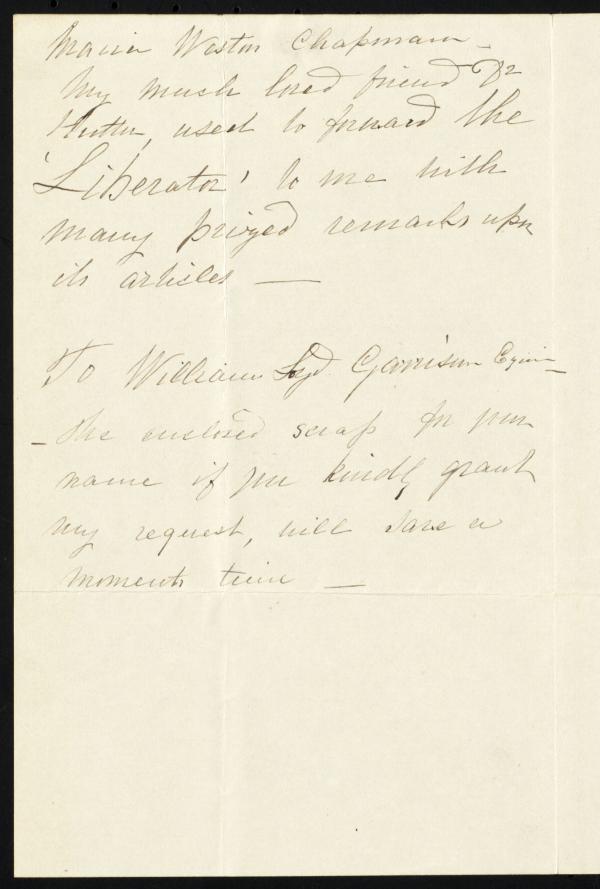 Maria Weston Chapman -
My much loved friend Dr
Hutton, used to forward the
'Liberator' to me with
many prized remarks upon
its articles —
To William Lyd Garrison Esquire -
- The enclosed scrap for your
name if you kindly grant
my request, will save a
moments time —